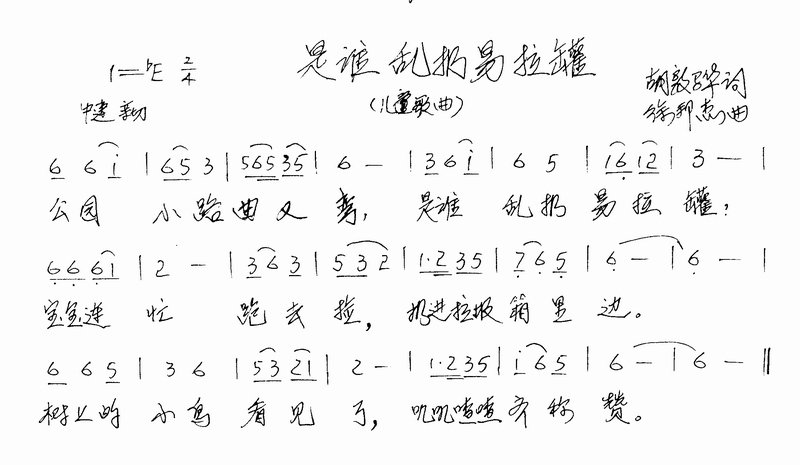 是谁乱扔易拉罐
1=♭E 2/4
(儿童歌曲)
胡敦骅词
徐邦杰曲
6 6 i | 6 5 3 | 5 6 5 3 5 | 6 — | 3 6 i | 6 5 | 1 6 1 2 | 3 — |
公园 小路曲又弯, 是谁 乱扔 易拉罐;
6 6 6 i | 2 — | 3 6 3 | 5 3 2 | 1·2 3 5 | 7 6 5 | 6 — | 6 — |
宝宝连忙 跑去捡, 扔进垃圾箱里边。
6 6 5 | 3 6 | 5 3 2 1 | 2 — | 1·2 3 5 | i 6 5 | 6 — | 6 — ‖
树上的 小鸟 看见了, 叽叽喳喳齐称赞。